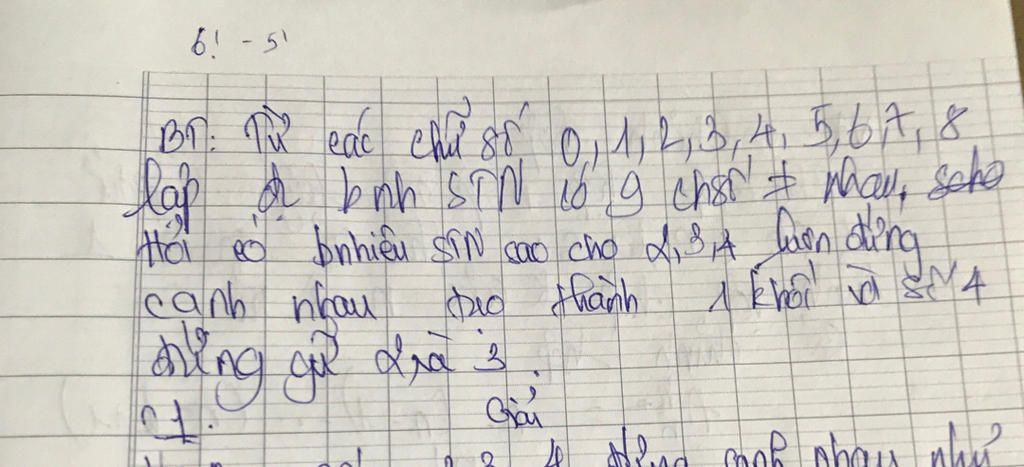 6! - 5!
BT: Từ các chữ số 0, 1, 2, 3, 4, 5, 6, 7, 8
lập đc bnh STN có 9 chsố ≠ nhau,
Hỏi có bnhiêu STN sao cho 2, 3, 4 luôn đứng
cạnh nhau tạo thành 1 khối và số 4
đứng giữ 2 và 3.
C1: Giải
2, 3, 4 đứng cạnh nhau như